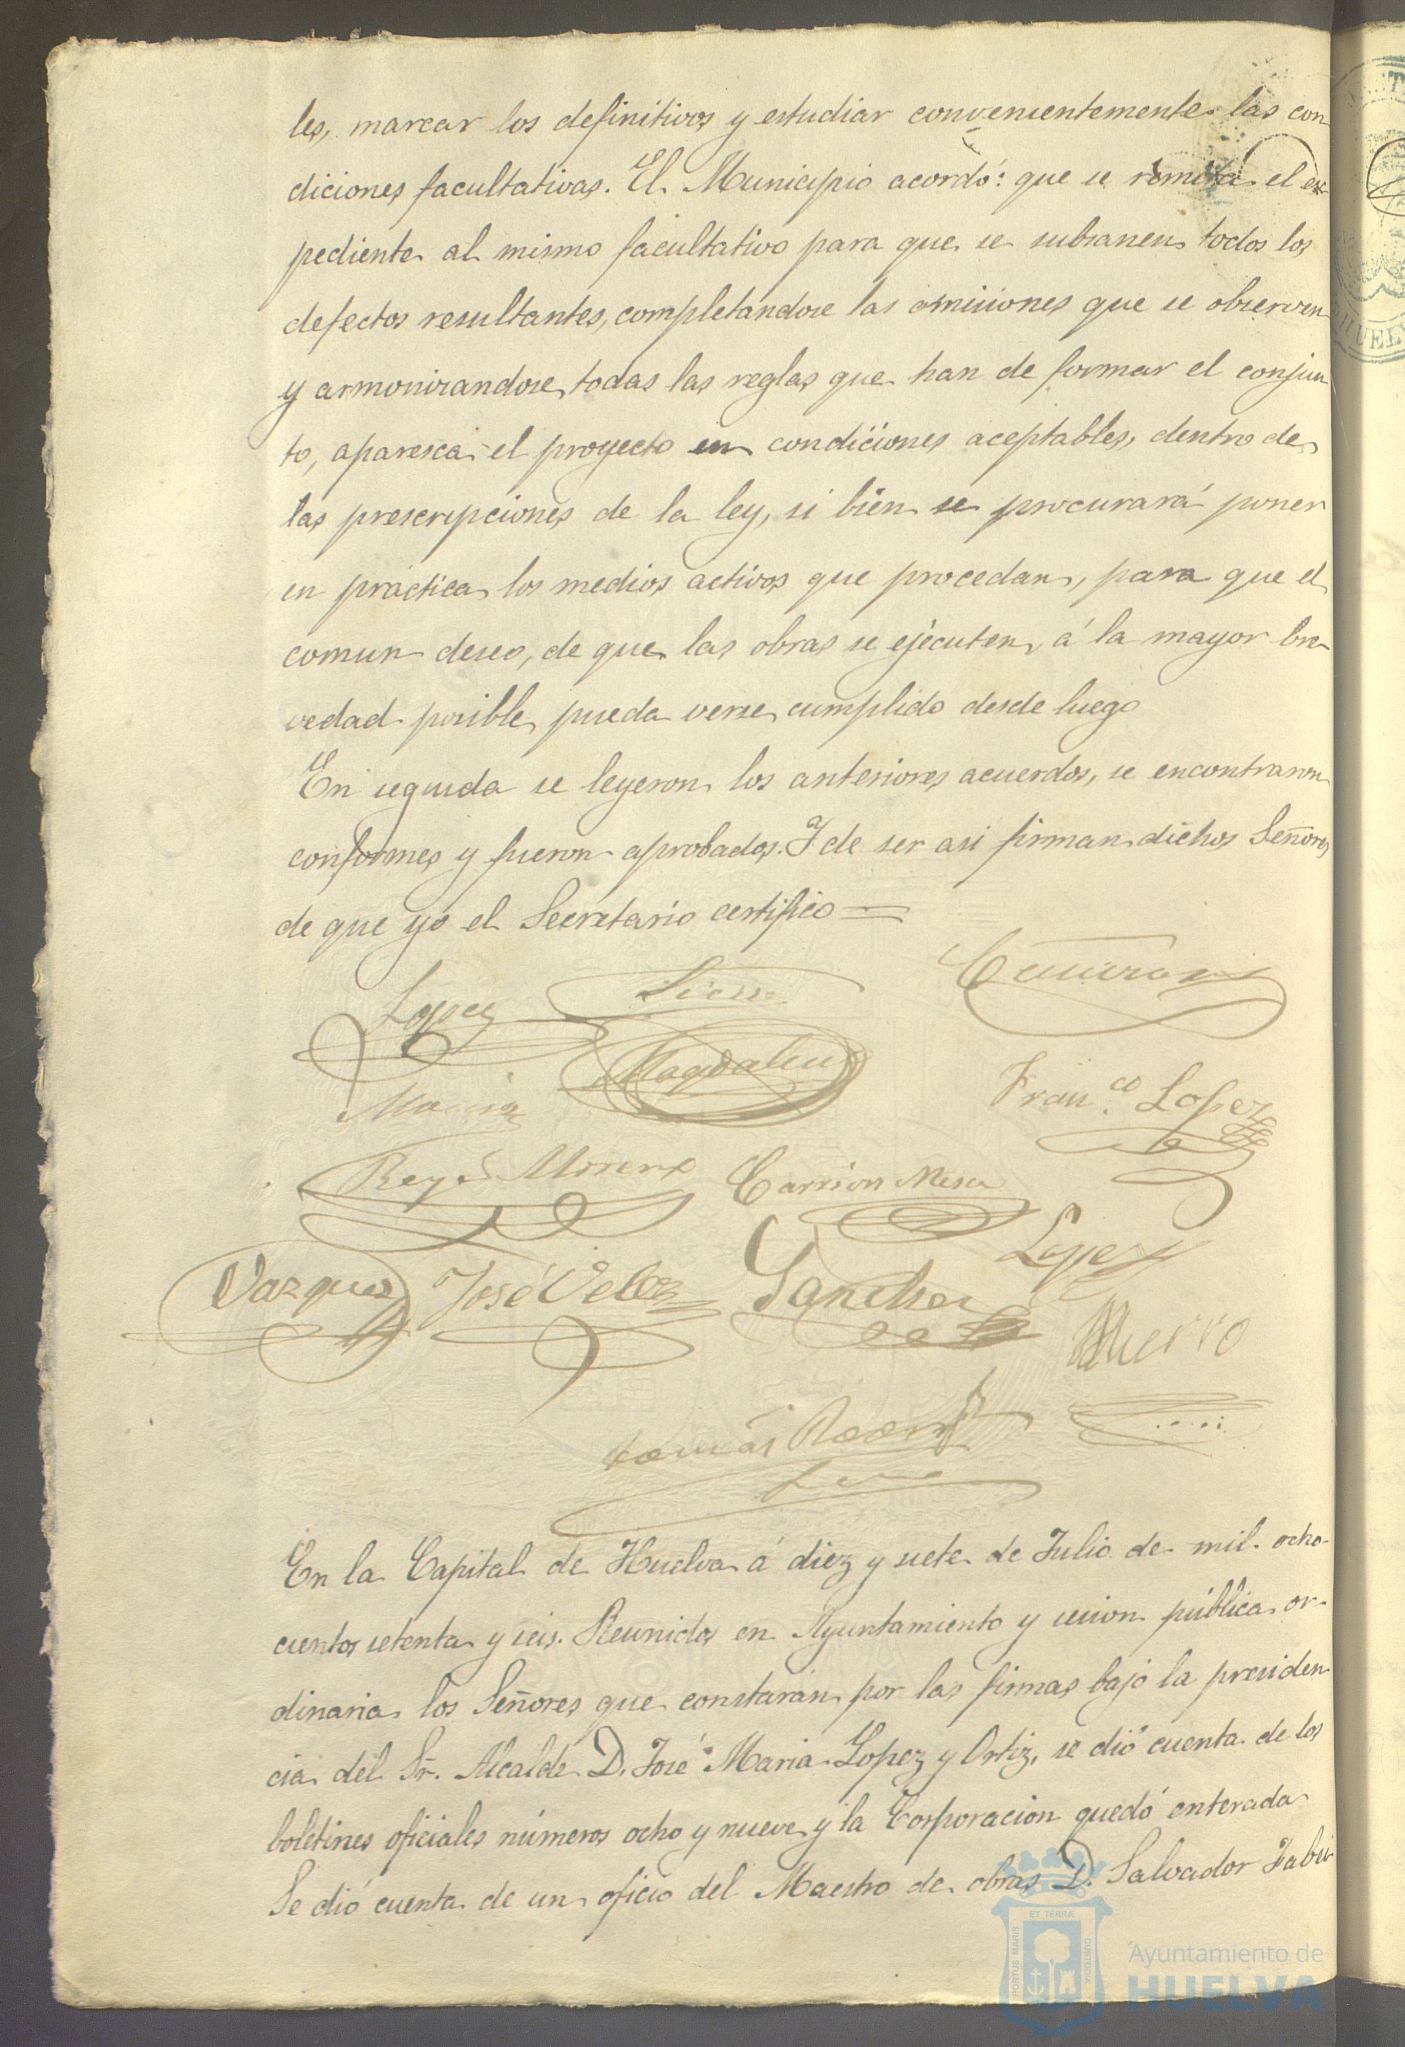 les, marcar los definitivos y estudiar convenientemente las con
diciones facultativas. El Municipio acordó: que se remita el ex-
pediente al mismo facultativo para que se subsanen todos los
defectos resultantes, completandose las omisiones que se observen
y armonizandose todas las reglas que han de formar el conjun
to, aparezca el proyecto en condiciones aceptables, dentro de
las prescripciones de la ley, si bien se procurará poner
en práctica los medios activos que procedan, para que el
comun deseo, de que las obras se ejecuten á la mayor bre-
vedad posible pueda verse cumplido desde luego
En seguida se leyeron los anteriores acuerdos, se encontraron
conformes y fueron aprobados. Y de ser asi firman dichos Señores
de que yo el Secretario certifico =
Lopez
Magdalena
Franco. Lopez
Reyes Moreno Carrion Mesa
Lopez
Vazquez José Velez Sanchez
Tomás
En la Capital de Huelva á diez y siete de Julio de mil ocho-
cientos setenta y seis. Reunidos en Ayuntamiento y sesion pública or-
dinaria los Señores que constarán por las firmas bajo la presiden
cia del Sr. Alcalde D. José Maria Lopez y Ortiz, se dió cuenta de los
boletines oficiales números ocho y nueve y la Corporacion quedó enterada
Se dió cuenta de un oficio del Maestro de obras D. Salvador
PORTUS MARIS ET TERRÆ CUSTODIA
Ayuntamiento de
HUELVA